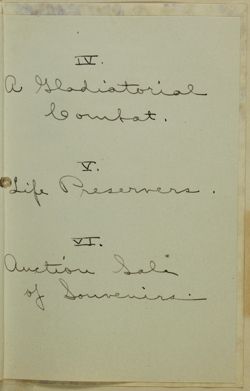 IV.
A Gladiatorial
Combat.
V.
Life Preservers.
VI.
Auction Sale
of Souvenirs.